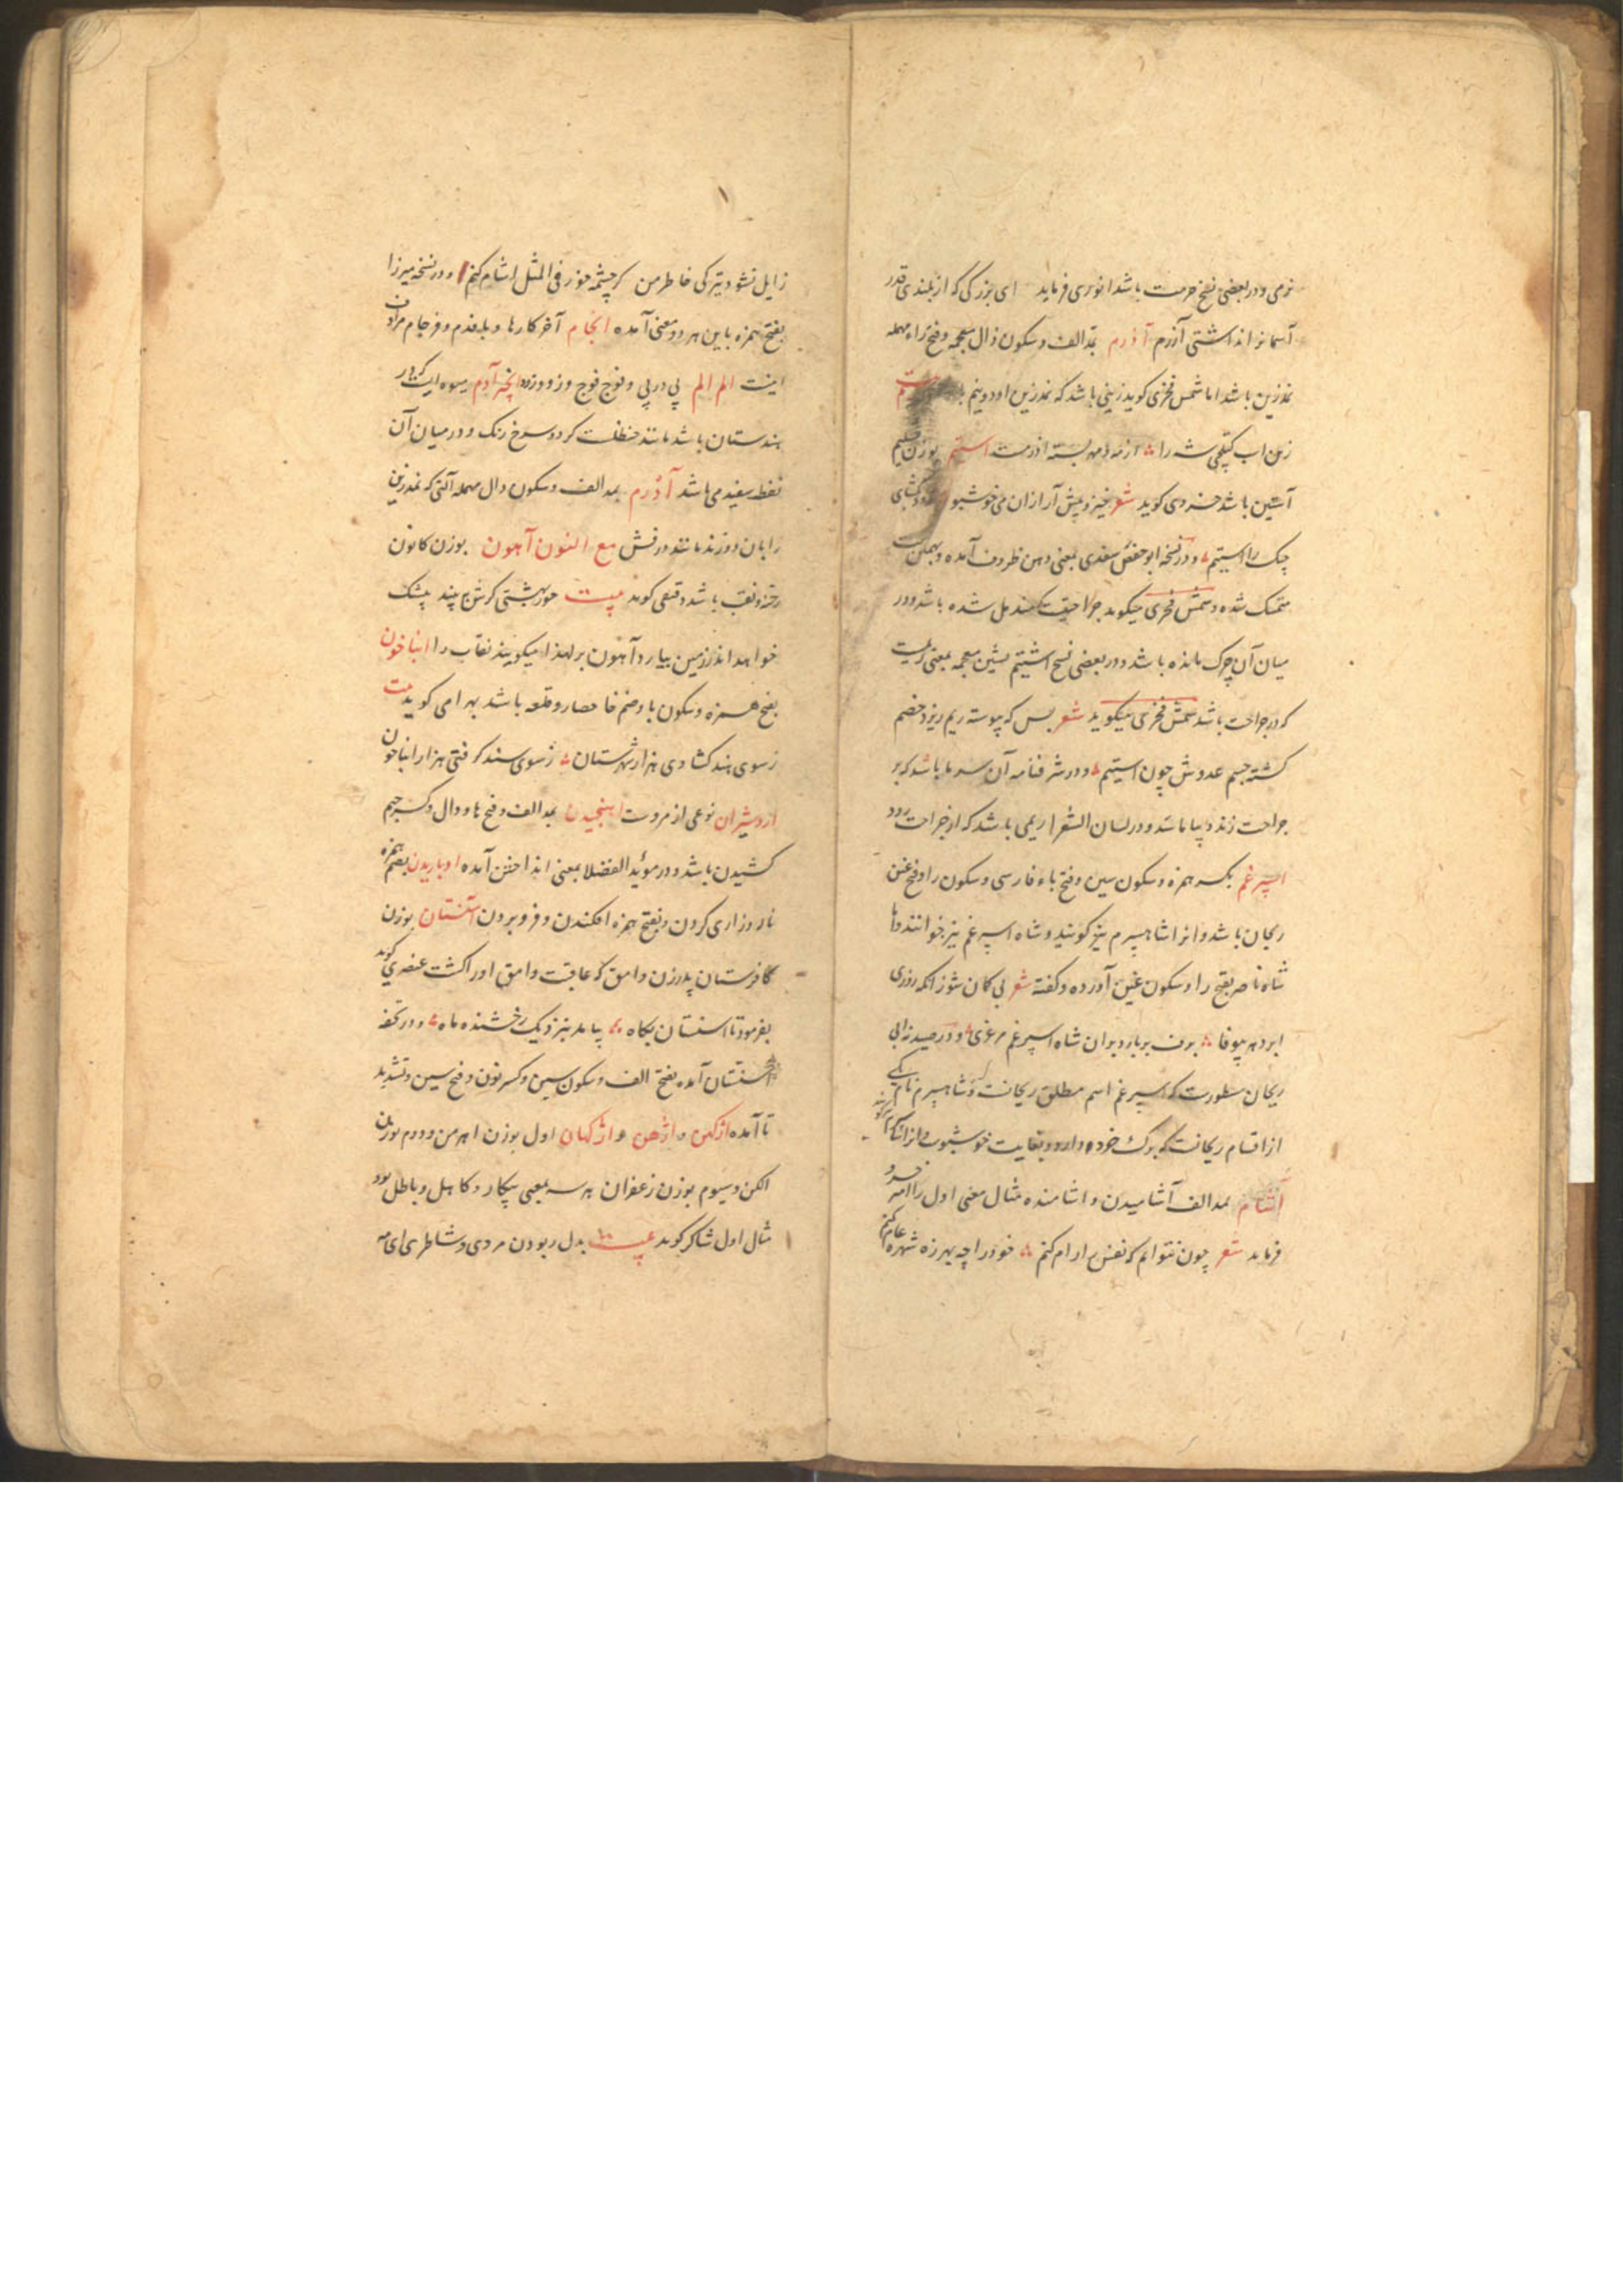 نرمی و در بعضی نسخ حرمت باشد انوری فرماید ای بزرگی که از بلندی قدر
آسمانرا نداشتی آزرم آذرم بمد الف و سکون ذال معجمه و فتح راء مهمله
نمدزین باشد اما شمس فخری کوید زینی باشد که نمدزین او دو نیم
زین اسب را از مه بسته اذرمت استیم بوزن
آستین باشد خسروی کوید شعر خیز و پیش آر ازان می خوشبو
چنک را استیم و در نسخه ابو حفص سغدی بمعنی دهن ظروف آمده و
متمسک شده و شمس فخری میکوید جراحت باشد و در
میان آن چرک مانده باشد و در بعضی نسخ اشتیم بشین معجمه بمعنی ریمیست
که در جراحت باشد شمس فخری میکوید شعر بس که پیوسته ریم ریزد خصم
کشته جسم عدوش چون استیم و در شرفنامه آن سرما باشد که بر
جراحت زند و در لسان الشعرا ریمی باشد که از جراحت رود
اسپرغم بکسر همزه و سکون سین و فتح باء فارسی و سکون را و فتح غین
ریحان باشد و انرا شاهسپرم نیز کویند و شاه اسپرغم نیز خوانند و اما
شاه ناصر بفتح را و سکون غین آورده و کفته شعر بی کمان شو زانکه روزی
ابر دهر بیوفا برف بر بارد بران شاه اسپرغم مرغزی و در صیدنه ابی
ریحان مسطورست که اسپرغم اسم مطلق ریحانست و شاهسپرم نام یکی
از اقسام ریحانست که برک خرد دارد و بغایت خوشبوی
آشام بمد الف آشامیدن و اشامنده مثال معنی اول را امیر خسرو
فرماید شعر چون نتوانم که نفس را رام کنم خود را چه بهرزه شهره عام کنم
زایل نشود تیرکی خاطر من کر چشمه خور فی المثل اشام کنم و در نسخه میرزا
بفتح همزه باین هر دو معنی آمده انجام آخر کارها و فرجام مرادف
اینست الم الم پی در پی و فوج فوج انجره آدم میوه ایست که در
هندستان باشد مانند حنظلست کرد و سرخ رنک و در میان آن
نقطه سفید می باشد آدرم بمد الف و سکون دال مهمله آلتی که نمدزین
را بان دوزند مانند درفش مع النون آهون بوزن کانون
رخنه و نقب باشد دقیقی کوید بیت حور بهشتی کرش ببیند بیشک
خواهد اندر زمین بیارد آهون بر لهذا میکویند نقاب را انباخون
بفتح همزه و سکون با و ضم خا حصار و قلعه باشد بهرامی کوید بیت
ز سوی هند کشادی هزار ترکستان ز سوی سند کرفتی هزار انباخون
اردشیران نوعی از مروست اهنجیدن بمد الف و فتح ها و دال و کسر جیم
کشیدن باشد و در موید الفضلا بمعنی انداختن آمده اوباریدن بضم همزه
ناله و زاری کردن و بفتح همزه افکندن و فرو بردن استنستان بوزن
کافرستان پدر زن وامق که عاقبت وامق او را کشت عنصری کوید
بفرمود تا بکاه بیامد بنزدیک رخشنده ماه و در تحفه
آمده بفتح الف و سکون سین و کسر نون و فتح سین و تشدید
تا آمده اژکهن و اژهن و اژکهان اول بوزن اهرمن و دوم بوزن
الکن و سیوم بوزن زعفران هر سه بمعنی بیکار و کاهل و باطل بود
مثال اول شاکر کوید بیت بدل ربودن مردی و شاطری ای مه